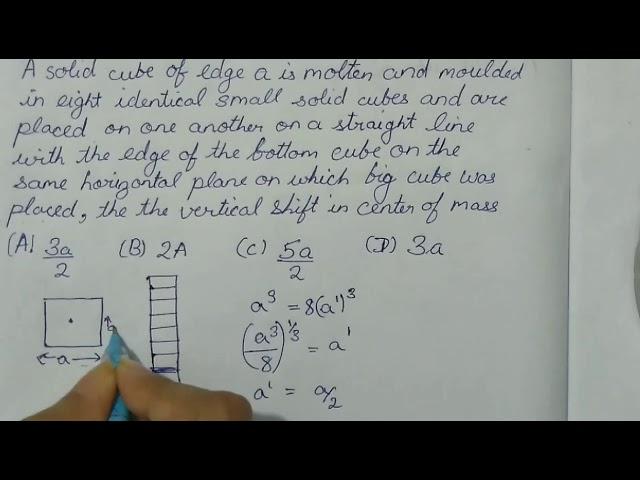 A solid cube of edge a is molten and moulded
in eight identical small solid cubes and are
placed on one another on a straight line
with the edge of the bottom cube on the
same horizontal plane on which big cube was
placed, the the vertical shift in center of mass
(A) 3a/2 (B) 2A (C) 5a/2 (D) 3a
a³ = 8(a')³
(a³/8)^1/3 = a'
a
a' = a/2